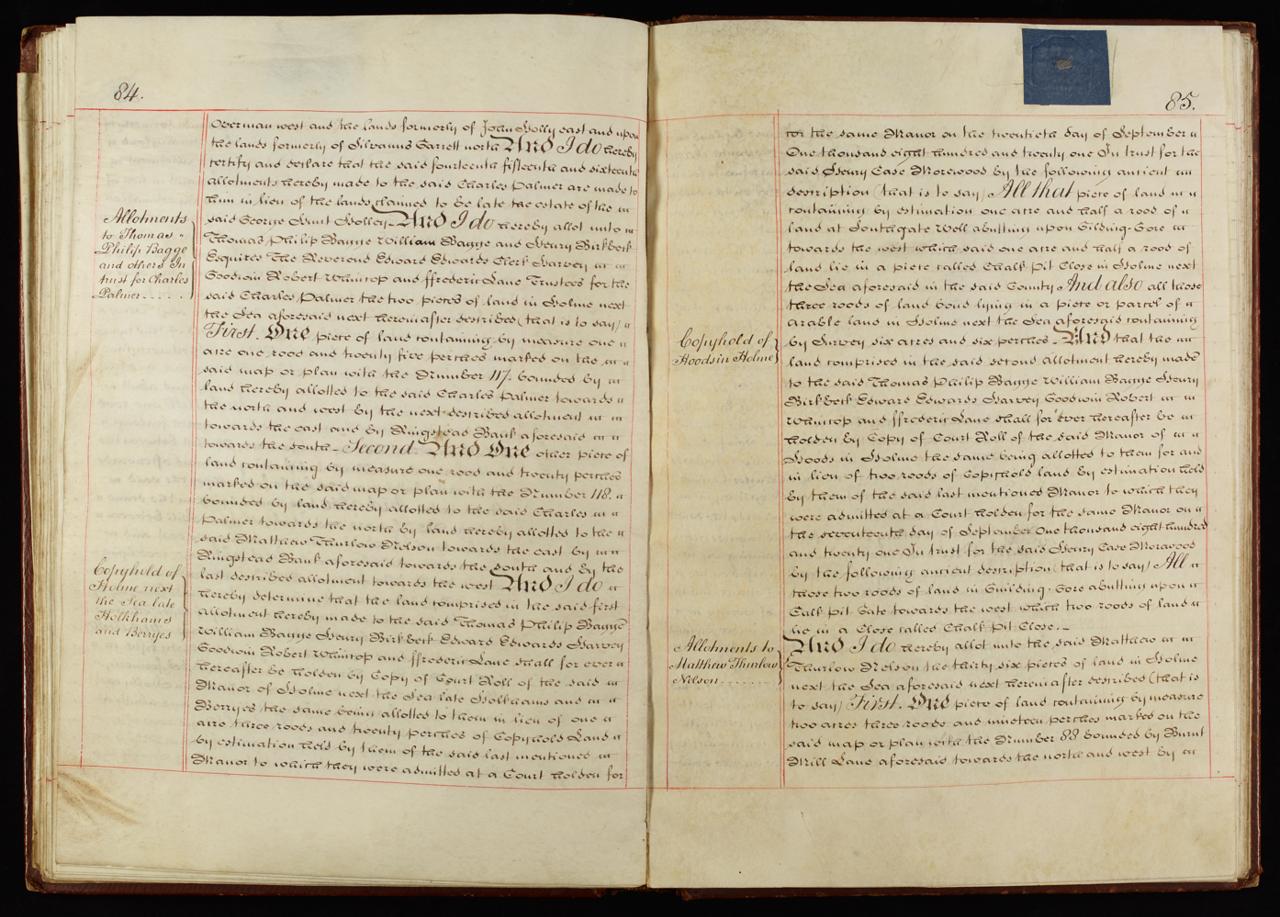 84.
Overman west and the lands formerly of John Holly east and upon
the lands formerly of Silvanus Garrett north And I do hereby
certify and declare that the said fourteenth fifteenth and sixteenth
allotments hereby made to the said Charles Palmer are made to
him in lieu of the lands claimed to be late the estate of the
said George Hunt Holley And I do hereby allot unto
Thomas Philip Bagge William Bagge and Henry Birkbeck
Esquires The Reverend Edward Edwards Clerk Harvey
Goodwin Robert Whincop and ffrederic Lane Trustees for the
said Charles Palmer the two pieces of land in Holme next
the Sea aforesaid next hereinafter described (that is to say)
First. One piece of land containing by measure one
acre one rood and twenty five perches marked on the
said map or plan with the Number 117. bounded by
land hereby allotted to the said Charles Palmer towards
the north and west by the next described allotment
towards the east and by Ringstead Bank aforesaid
towards the south - Second. And One other piece of
land containing by measure one rood and twenty perches
marked on the said map or plan with the Number 118.
bounded by land hereby allotted to the said Charles
Palmer towards the north by land hereby allotted to the
said Matthew Thurlow Nelson towards the east by
Ringstead Bank aforesaid towards the south and by the
last described allotment towards the west And I do
hereby determine that the land comprised in the said first
allotment hereby made to the said Thomas Philip Bagge
William Bagge Henry Birkbeck Edward Edwards Harvey
Goodwin Robert Whincop and ffrederic Lane shall for ever
hereafter be holden by Copy of Court Roll of the said
Manor of Holme next the Sea late Holkhams and
Berryes the same being allotted to them in lieu of one
acre three roods and twenty perches of Copyhold Land
by estimation held by them of the said last mentioned
Manor to which they were admitted at a Court holden for
Allotments
to Thomas
Philip Bagge
and others In
trust for Charles
Palmer.....
Copyhold of
Holme next
the Sea late
Holkhams
and Berryes
85.
for the same Manor on the twentieth day of September
One thousand eight hundred and twenty one In trust for the
said Henry Case Morewood by the following ancient
description (that is to say) All that piece of land
containing by estimation one acre and half a rood of
land at Southgate Well abutting upon Gilding-Gore
towards the west which said one acre and half a rood of
land lie in a piece called Chalk Pit Close in Holme next
the Sea aforesaid in the said County And also all those
three roods of land Bond lying in a piece or parcel of
arable land in Holme next the Sea aforesaid containing
by Survey six acres and six perches - And that the
land comprised in the said second allotment hereby made
to the said Thomas Philip Bagge William Bagge Henry
Birkbeck Edward Edwards Harvey Goodwin Robert
Whincop and ffrederic Lane shall for ever hereafter be
holden by Copy of Court Roll of the said Manor of
Hoods in Holme the same being allotted to them for and
in lieu of two roods of Copyhold land by estimation held
by them of the said last mentioned Manor to which they
were admitted at a Court holden for the same Manor on
the seventeenth day of September One thousand eight hundred
and twenty one In trust for the said Henry Case Morewood
by the following ancient description (that is to say) All
those two roods of land in Guilding-Gore abutting upon
Calk Pit Gate towards the west which two roods of land
lie in a Close called Chalk Pit Close. -
And I do hereby allot unto the said Matthew
Thurlow Nelson the thirty six pieces of land in Holme
next the Sea aforesaid next hereinafter described (that is
to say) First. One piece of land containing by measure
two acres three roods and nineteen perches marked on the
said map or plan with the Number 88 bounded by Burnt
Mill Lane aforesaid towards the north and west by
Copyhold of
Hoods in Holme
Allotments to
Matthew Thurlow
Nelson.......